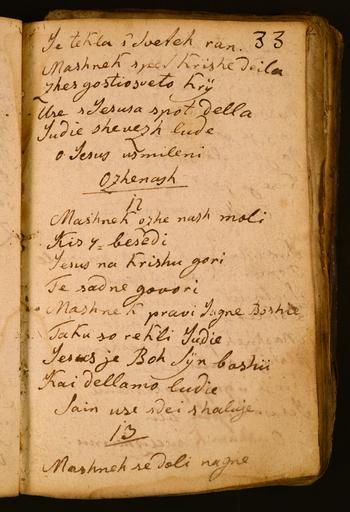 Je tekla s' Svetek ran. 33
Mashnek spet Krishe deila
shes gostiosveto Kry
Use s Jesusa spot della
Judie shevezh lude
o Jesus usmileni
Ozhenash
12
Mashnek ozhe nash moli
Kir 7= besedi
Jesus na Krishu gori
Te sadne govori
Mashnek pravi Jagne Boshie
Taku so rekli Judie
Jesus je Boh Syn boshii
Kai dellamo ludie
Sain use sdei shaluje
13
Mashnek se doli nagne